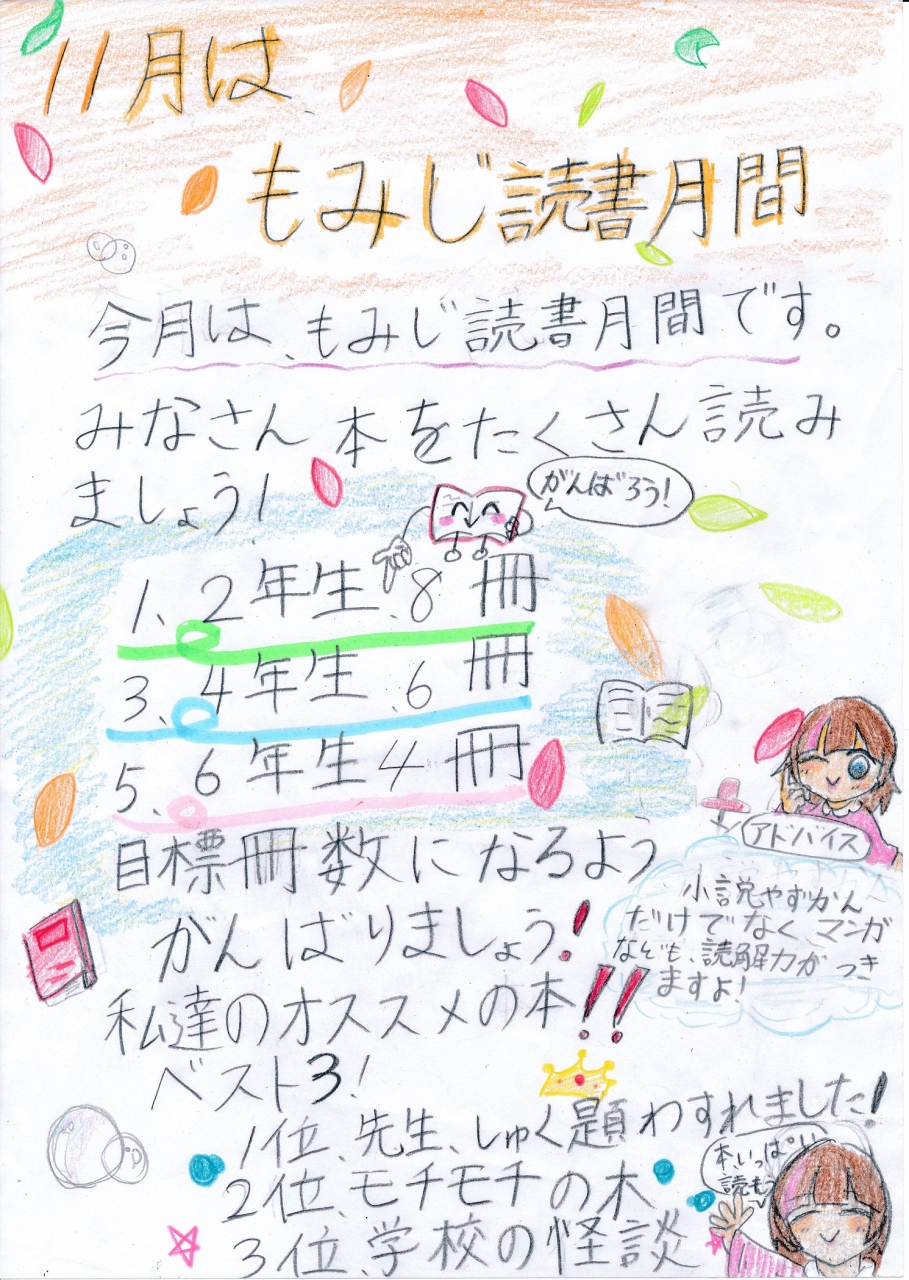 11月は
もみじ読書月間
今月は、もみじ読書月間です。
みなさん本をたくさん読み
ましょう!
がんばろう!
1、2年生、8冊
3、4年生、6冊
5、6年生4冊
目標冊数になるよう
がんばりましょう!
アドバイス
小説やずかん
だけでなくマンガ
なども、読解力がつき
ますよ!
私達のオススメの本!!
ベスト3!
1位、先生、しゅく題わすれました!
2位、モチモチの木
3位、学校の怪談
本、いっぱい
読もう